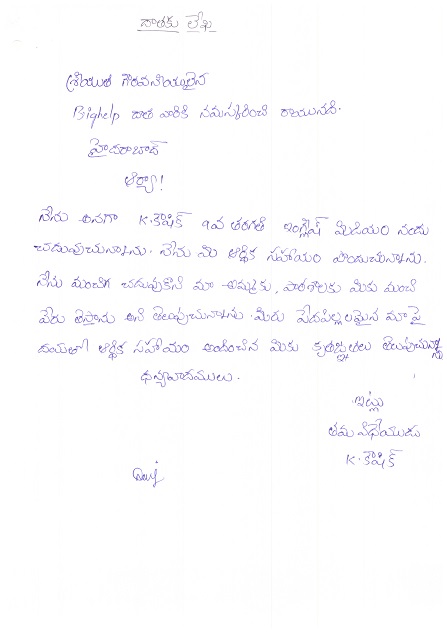 దాతకు లేఖ
శ్రీయుత గౌరవనీయులైన
Bighelp దాత వారికి నమస్కరించి రాయునది.
హైదరాబాద్
ఆర్యా!
నేను అనగా K.కౌషిక్ 9వ తరగతి ఇంగ్లీష్ మీడియం నందు
చదువుచున్నాను. నేను మీ ఆర్థిక సహాయం పొందుచున్నాను.
నేను మంచిగ చదువుకొని మా అమ్మకు, పాఠశాలకు మీకు మంచి
పేరు తెస్తాను అని తెలుపుచున్నాను. మీరు పేదపిల్లలమైన మా పై
దయతో ఆర్థిక సహాయం అందించిన మీకు కృతజ్ఞతలు తెలుపుచున్నాను
ధన్యవాదములు.
ఇట్లు
తమ విధేయుడు
K.కౌషిక్